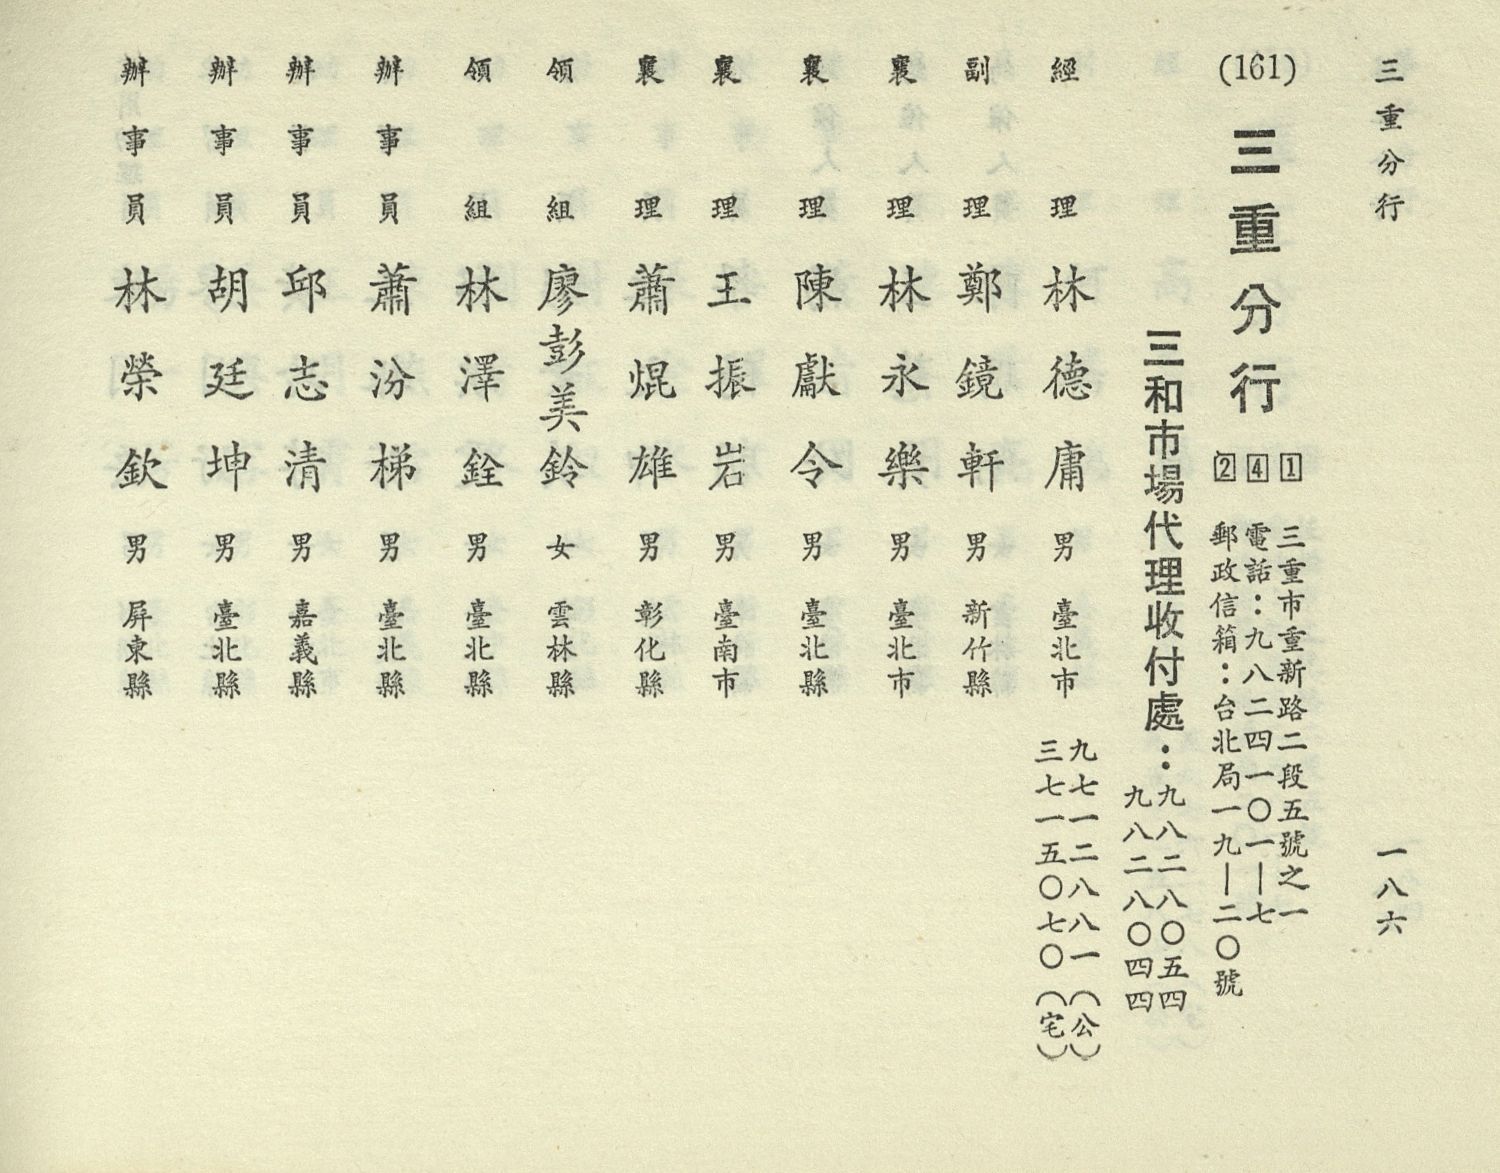 三重分行
一八六
(161)
三重分行
1 三重市重新路二段五號之一
4 電話：九八二四一〇一—七
2 郵政信箱：台北局一九—二〇號
三和市場代理收付處：九八二八〇五四
九八二八〇四四
經理 林德庸 男 臺北市 九七一二八八一（公）
三七一五〇七〇（宅）
副理 鄭鏡軒 男 新竹縣
襄理 林永樂 男 臺北市
襄理 陳獻令 男 臺北縣
襄理 王振岩 男 臺南市
襄理 蕭焜雄 男 彰化縣
領組 廖彭美鈴 女 雲林縣
領組 林澤銓 男 臺北縣
辦事員 蕭汾梯 男 臺北縣
辦事員 邱志清 男 嘉義縣
辦事員 胡廷坤 男 臺北縣
辦事員 林榮欽 男 屏東縣